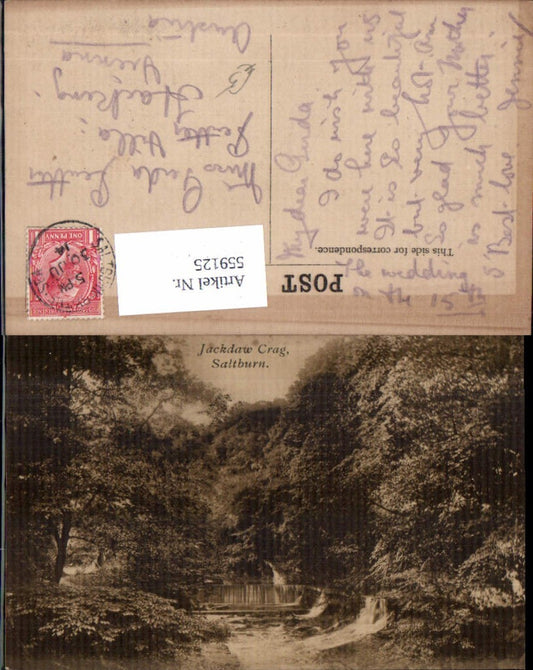 This side for correspondence.
POST
My dear Gerda
I do wish you
were here with us
It is so beautiful
but very hot. Am
so glad your Mother
is much better.
Best love Jenny
The wedding
on the 15th
Miss Gerda
Villa
Hacking
Vienna
Austria
£3
ONE PENNY
5 PM
30 JU
14
Artikel Nr.
559125
Jackdaw Crag,
Saltburn.